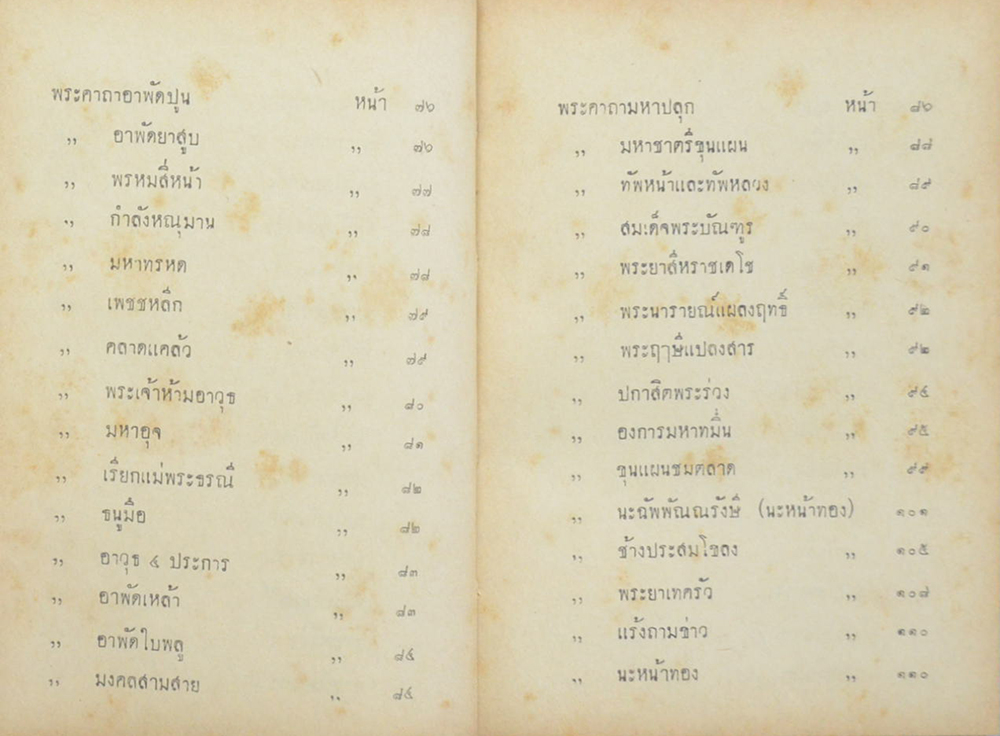 พระคาถาอาพัดปูน หน้า ๗๖
,, อาพัดยาสูบ ,, ๗๖
,, พรหมสี่หน้า ,, ๗๗
,, กำลังหณุมาน ,, ๗๘
,, มหาทรหด ,, ๗๘
,, เพชชหลีก ,, ๗๙
,, คลาดแคล้ว ,, ๗๙
,, พระเจ้าห้ามอาวุธ ,, ๘๐
,, มหาอุจ ,, ๘๑
,, เรียกแม่พระธรณี ,, ๘๒
,, ธนูมือ ,, ๘๒
,, อาวุธ ๔ ประการ ,, ๘๓
,, อาพัดเหล้า ,, ๘๓
,, อาพัดใบพลู ,, ๘๔
,, มงคลสามสาย ,, ๘๔
พระคาถามหาปลุก หน้า ๘๖
,, มหาชาตรีขุนแผน ,, ๘๘
,, ทัพหน้าและทัพหลวง ,, ๘๙
,, สมเด็จพระบัณฑูร ,, ๙๐
,, พระยาสีหราชเดโช ,, ๙๑
,, พระนารายณ์แผลงฤทธิ์ ,, ๙๒
,, พระฤๅษีแปลงสาร ,, ๙๒
,, ปกาสิตพระร่วง ,, ๙๔
,, องการมหาทมื่น ,, ๙๕
,, ขุนแผนชมตลาด ,, ๙๙
,, นะฉัพพัณณรังษี (นะหน้าทอง) ๑๐๑
,, ช้างประสมโขลง ,, ๑๐๕
,, พระยาเทครัว ,, ๑๐๘
,, แร้งถามข่าว ,, ๑๑๐
,, นะหน้าทอง ,, ๑๑๐